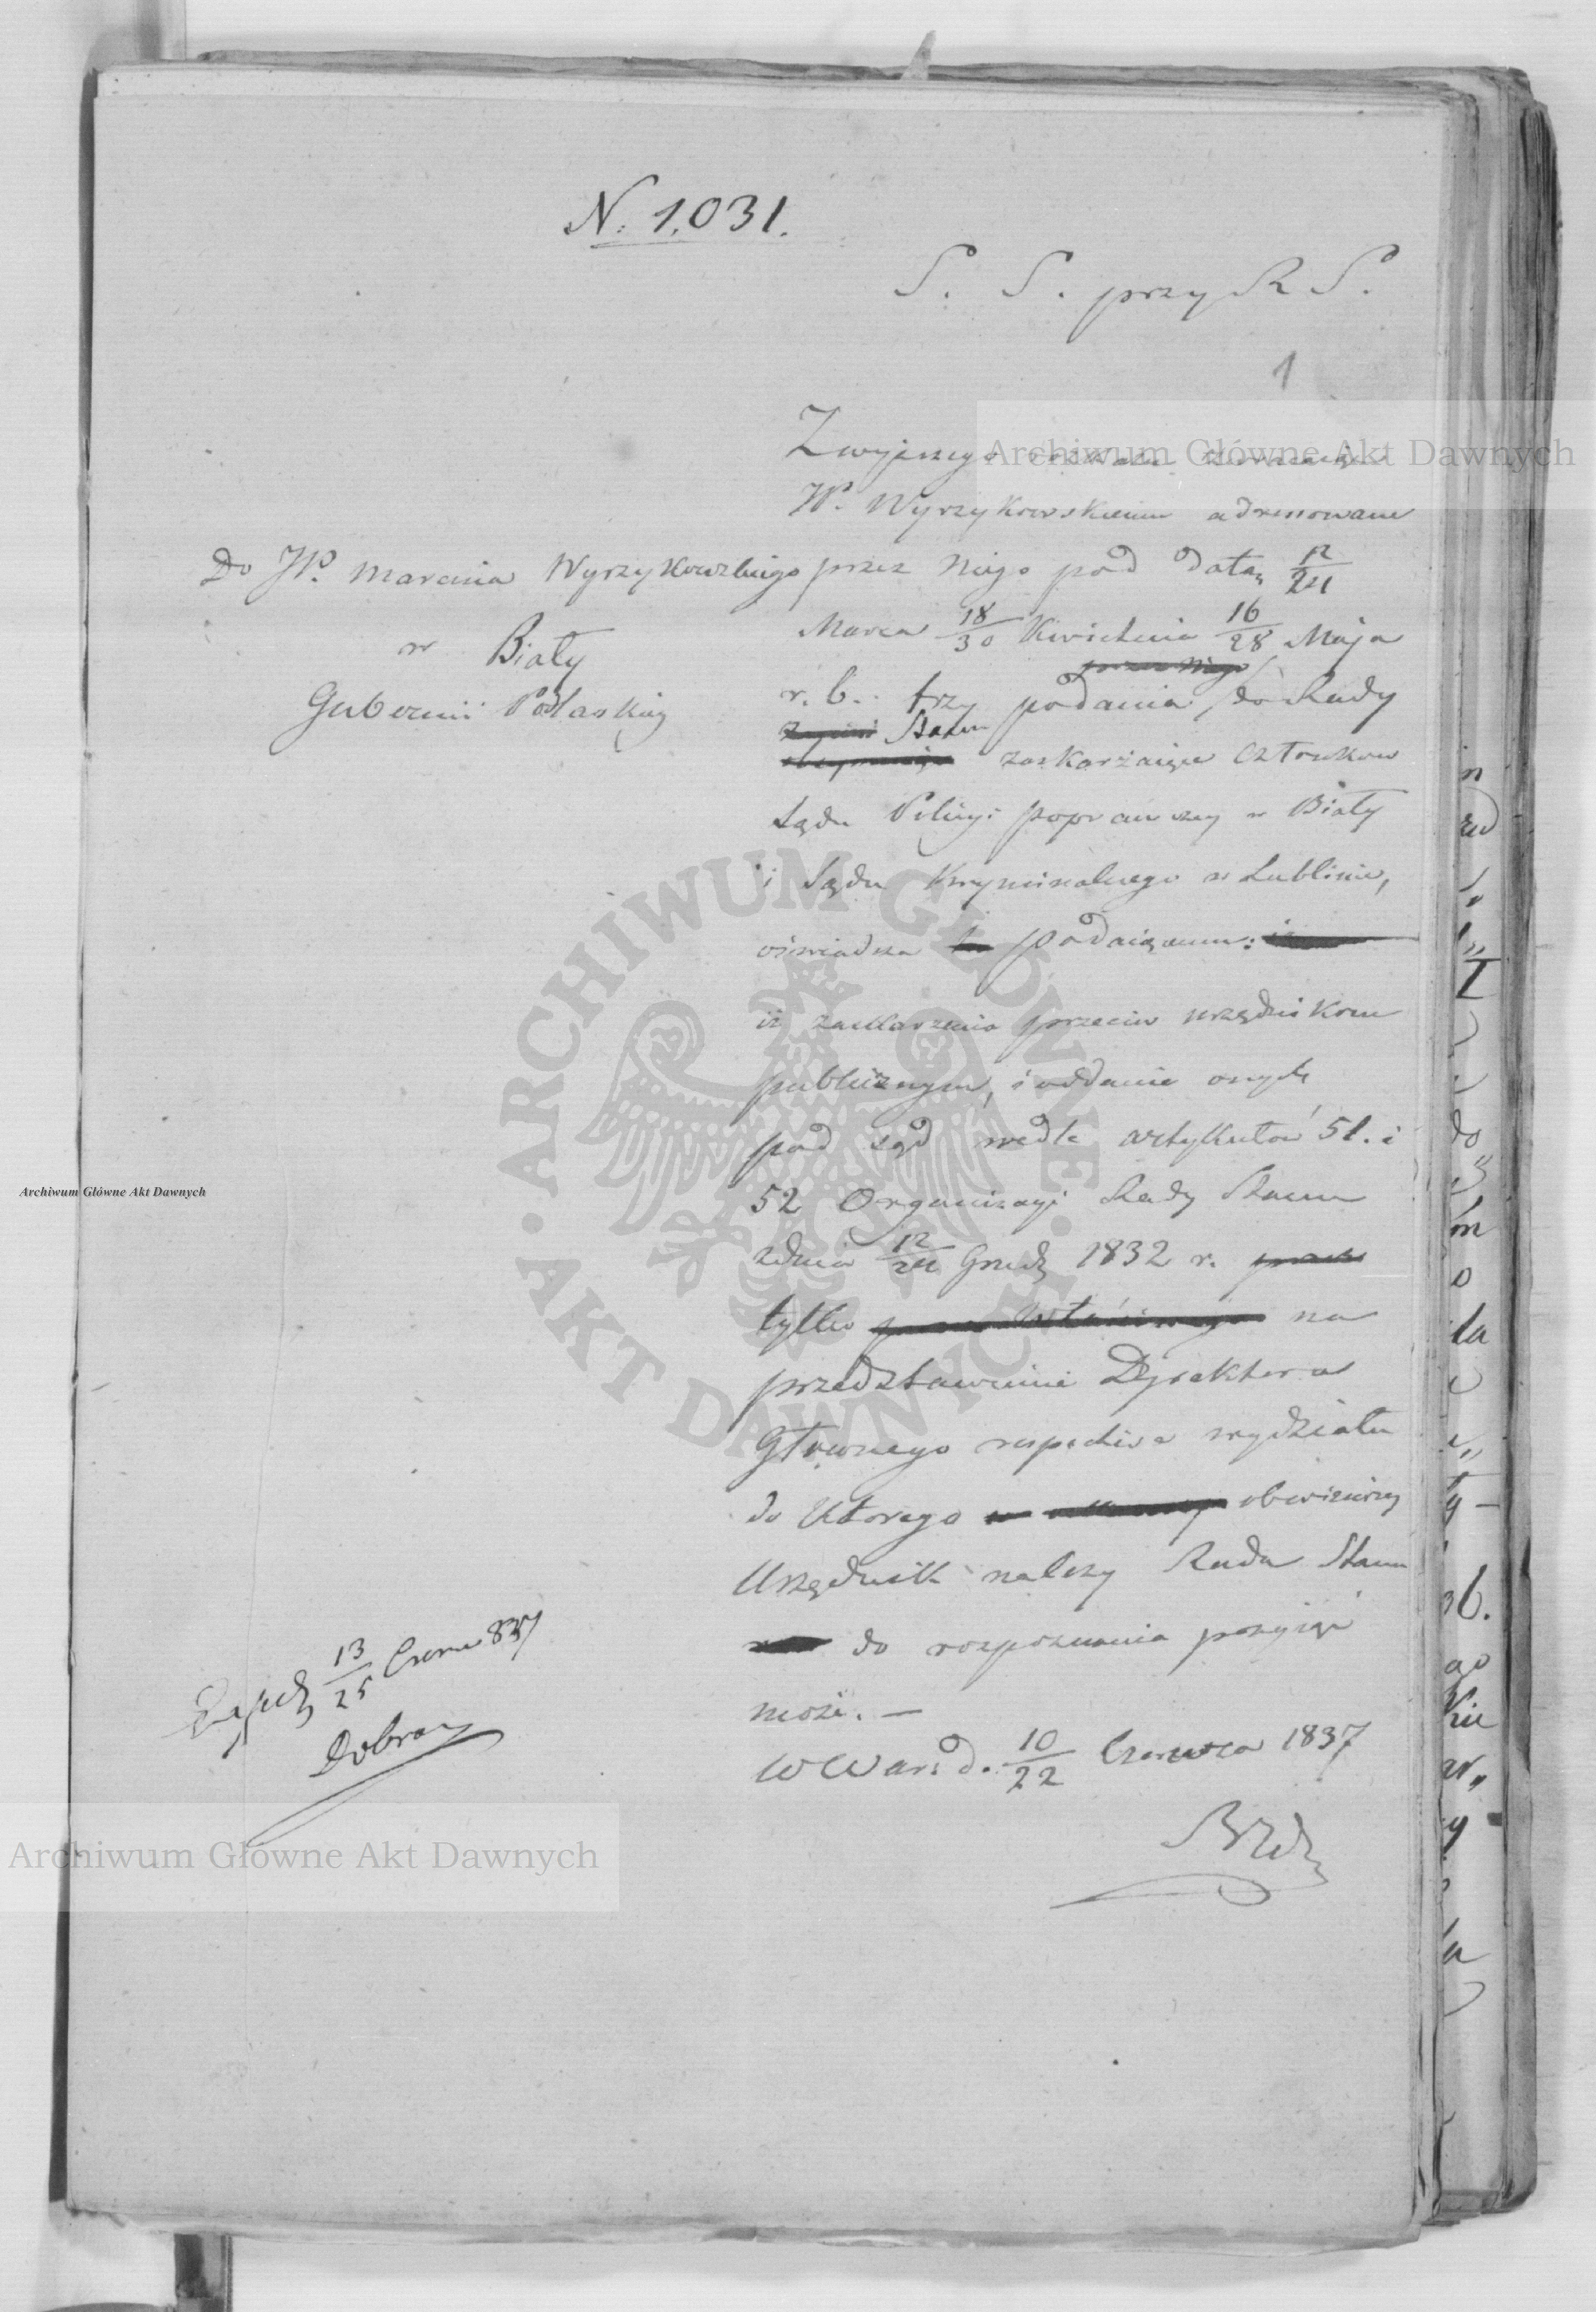 N. 1,031.
S. S. przy R S.
1
Zwyższego rozkazu zwracając
JP. Wyrzykowskiemu adresowane
Do JP. Marcina Wyrzykowskiego
w Biały
Gubernii Podlaskiey
przez Niego pod datą 12/24
Marca 18/30 Kwietnia 16/28 Maja
przez Niego
r. b. trzy podania do Rady
Stanu
zaskarżaiące Członków
Sądu Policyi poprawczey w Biały
i Sądu Kryminalnego w Lublinie,
oświadcza podaiącemu:
iż zaskarzenia przeciw urzędnikom
publicznym, i oddanie onych
pod sąd wedle artykułów 51. i
52 Organizacyi Rady Stanu
zdnia 12/24 Grud 1832 r. przez
tylko przez właściwego na
przedstawienie Dyrektora
Głównego respective wydziału
do którego obwiniony
Urzędnik należy Rada Stanu
do rozpoznania przyiąć
może. —
W War: d. 10/22 Czerwca 1837
Exped 13/25 Czerw 837
Archiwum Główne Akt Dawnych
Archiwum Główne Akt Dawnych
Archiwum Główne Akt Dawnych
· ARCHIWUM GŁÓWNE · AKT DAWNYCH